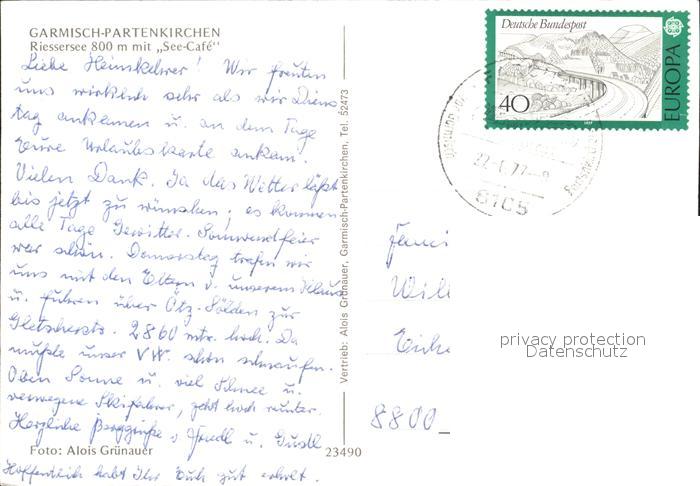 GARMISCH-PARTENKIRCHEN
Riessersee 800 m mit „See-Café"
Liebe Heimkehrer! Wir freuten
uns wirklich sehr als wir Diens
tag ankamen u. an dem Tage
Eure Urlaubskarte ankam.
Vielen Dank. Ja das Wetter läßt
bis jetzt zu wünschen, es kommen
alle Tage Gewitter. Sonnwendfeier
war schön. Donnerstag trafen wir
uns mit den Eltern v. unserem
u. fuhren über Ötz-Sölden zur
Gletscherstr. 2860 mtr. hoch. Da
mußte unser VW. schön schnaufen.
Oben Sonne u. viel Schnee u.
verwegene Skifahrer, jetzt noch runter.
Herzliche Berggrüße v Friedl u. Gustl
Foto: Alois Grünauer
23490
Hoffentlich habt Ihr Euch gut erholt.
Vertrieb: Alois Grünauer, Garmisch-Partenkirchen, Tel. 52473
Deutsche Bundespost
40
EUROPA
8105
Will
Eiche
8800
privacy protection
Datenschutz